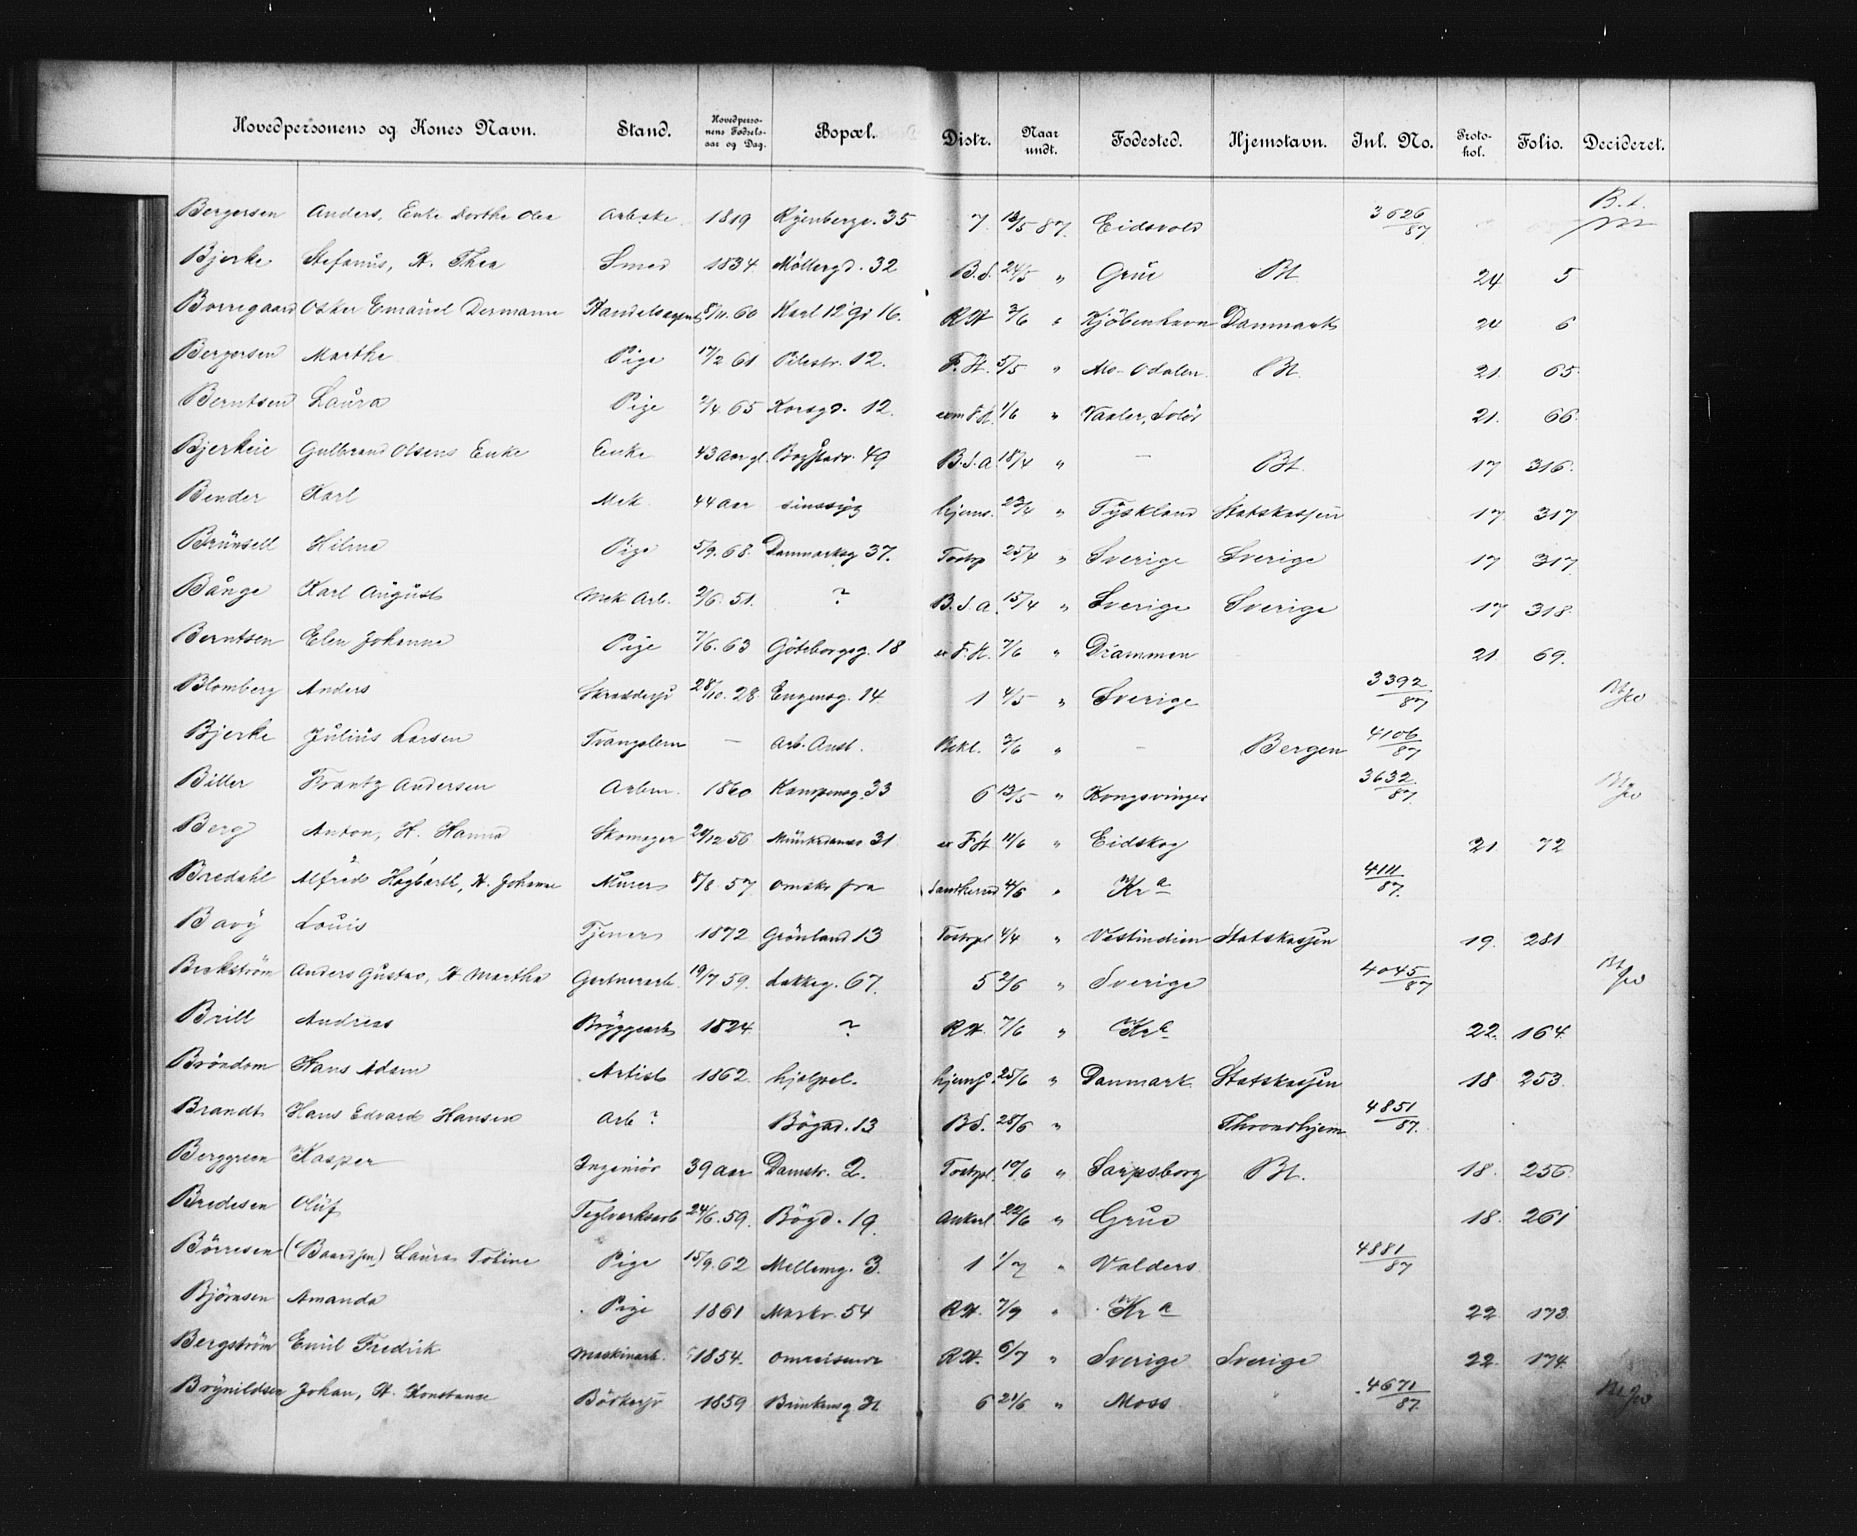 Hovedpersonens og Kones Navn. Stand. Hovedpersonens Fødselsaar og Dag. Bopæl. Distr. Naar undt. Fødested. Hjemstavn. Jnl. No. Protokol. Folio. Decideret.
Bergersen Anders, Enke Dorthe Olea Arbske. 1819 Kjenbergs. 35 7. 13/5 87. Eidsvold 3626/87 B.t.
Bjerke Stefanus, H. Thea Smed 1834 Möllergd. 32 B.S. 24/5 " Grue Bt. 24 5
Borregaard Oskar Emanuel Dermanne Handelsagent 8/11. 60 Karl 12' Gd 16. RH 3/6 " Kjöbenhavn Danmark 24 6
Bergersen Marthe Pige 17/2 61 Pilestr. 12. F.H. 5/5 " Nro-Odalen Bt. 21. 65
Berntsen Laura Pige 2/4. 65 Korsgd. 12. som F.H. 1/6 " Vaaler, Solör 21. 66.
Bjerkeie Gulbrand Olsens Enke Enke 43 Aar gl. Bogstadv. 49 B.S.A. 18/4 " — Bt. 17 316.
Bender Karl Mek. 44 Aar sinssyg hjems. 23/4 " Tyskland Statskassen 17. 317
Brünsell Hilma Pige 5/9. 68. Danmarksg 37. Tostrp 25/4 " Sverige Sverige 17 317.
Bånge Karl August Mek Arb. 2/6. 51. ? B.S.A. 15/4 " Sverige Sverige 17 318.
Berntsen Elen Johanne Pige 7/6. 63 Göteborgsg. 18 er F.H. 7/6 " Drammen 21 69.
Blomberg Anders Skræddersv 28/10. 28. Engensg. 14 1 4/5 " Sverige 3392/87
Bjerke Julius Larsen Tvangslem — Arb. Anst. Bekl. 3/6 " — Bergen 4106/87
Biller Frantz Andersen Arbm. 1860 Kampensg. 33 6 13/5 " Kongsvinger 3632/87.
Berg Anton, H. Hanna Skomager 24/12 56 Munkedamsv 31 er F.H. 11/6 " Eidskog 21 72
Bredahl Alfred Hagbarth, H. Johanne Murer 8/8. 57. omskr fra Santherud 4/6 " Kra 4111/87.
Bavy Louis Tjener 1872 Grönland 13 Tostrpl 4/4 " Vestindien Statskassen 19. 281
Beckström Anders Gustav, H Martha Gartnerarb. 19/7 59. Lakkeg. 67. 5 2/6 " Sverige 4045/87
Brill Andreas Bryggearb 1824 ? RH. 7/6 " Kra 22. 164.
Bröndom Hans Adam Artist 1862. hjælpel. hjemj. 25/6 " Danmark Statskassen 18 253
Brandt Hans Edvard Hansen Arb? Bögad. 13 B.S. 28/6 " Throndhjem 4851/87.
Berggreen Kasper Ingeniör 39 Aar Damstr. 2. Tostrpl 10/6 " Sarpsborg Bt. 18. 256.
Bredesen Oluf Teglverksarb 24/6. 59. Bögd. 19. Ankerl. 22/6 " Grue 18. 261
Börresen (Baardsen) Laura Tobine Pige 15/9. 62 Mellemg. 3. 1 1/7 " Valders 4881/87
Björnsen Amanda Pige 1861 Markv. 54 RH. 7/9 " Kra 22 173.
Bergström Emil Fredrik Maskinarb. 1854. omreisende RH. 6/7 " Sverige Sverige 22. 174.
Brynildsen Johan, H. Konstanse Bödkersv 1859 Brinkensg 31 6 21/6 " Moss " 4671/87.